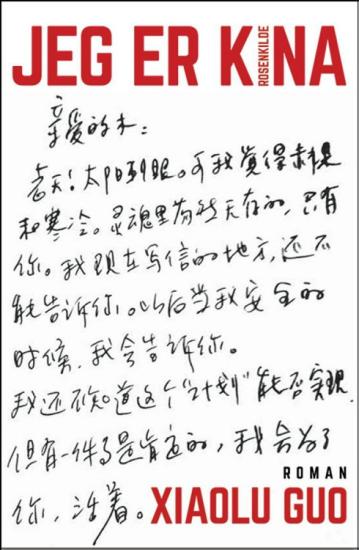 JEG ER K NA
ROSENKILDE
亲爱的木：
老天！太阳刺眼。可我覺得赤裸
和寒冷。灵魂里 存的，只有
你。我现在写信的地方，还不
能告诉你。以后当我安全的
时候，我会告诉你。
我还不知道这个“计划”能否实现，
但有一件事是肯定的，我会为了
你，活着。
ROMAN
XIAOLU GUO